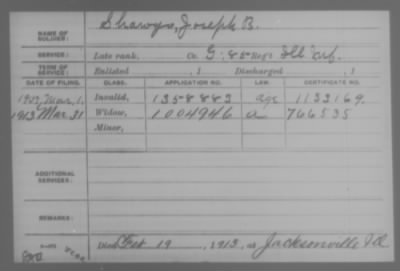 NAME OF SOLDIER: Joseph B.
SERVICE: Late rank, Co. G, 85 Reg't Ill. Inf.
TERM OF SERVICE: Enlisted , 1 Discharged , 1
DATE OF FILING. CLASS. APPLICATION NO. LAW. CERTIFICATE NO.
1907, Mar. 1. Invalid, 1358883 age 1133169.
1913 Mar. 31 Widow, 1004946 766535
Minor,
ADDITIONAL SERVICES:
REMARKS:
Died Feb 19, 1913, at Jacksonville Ill